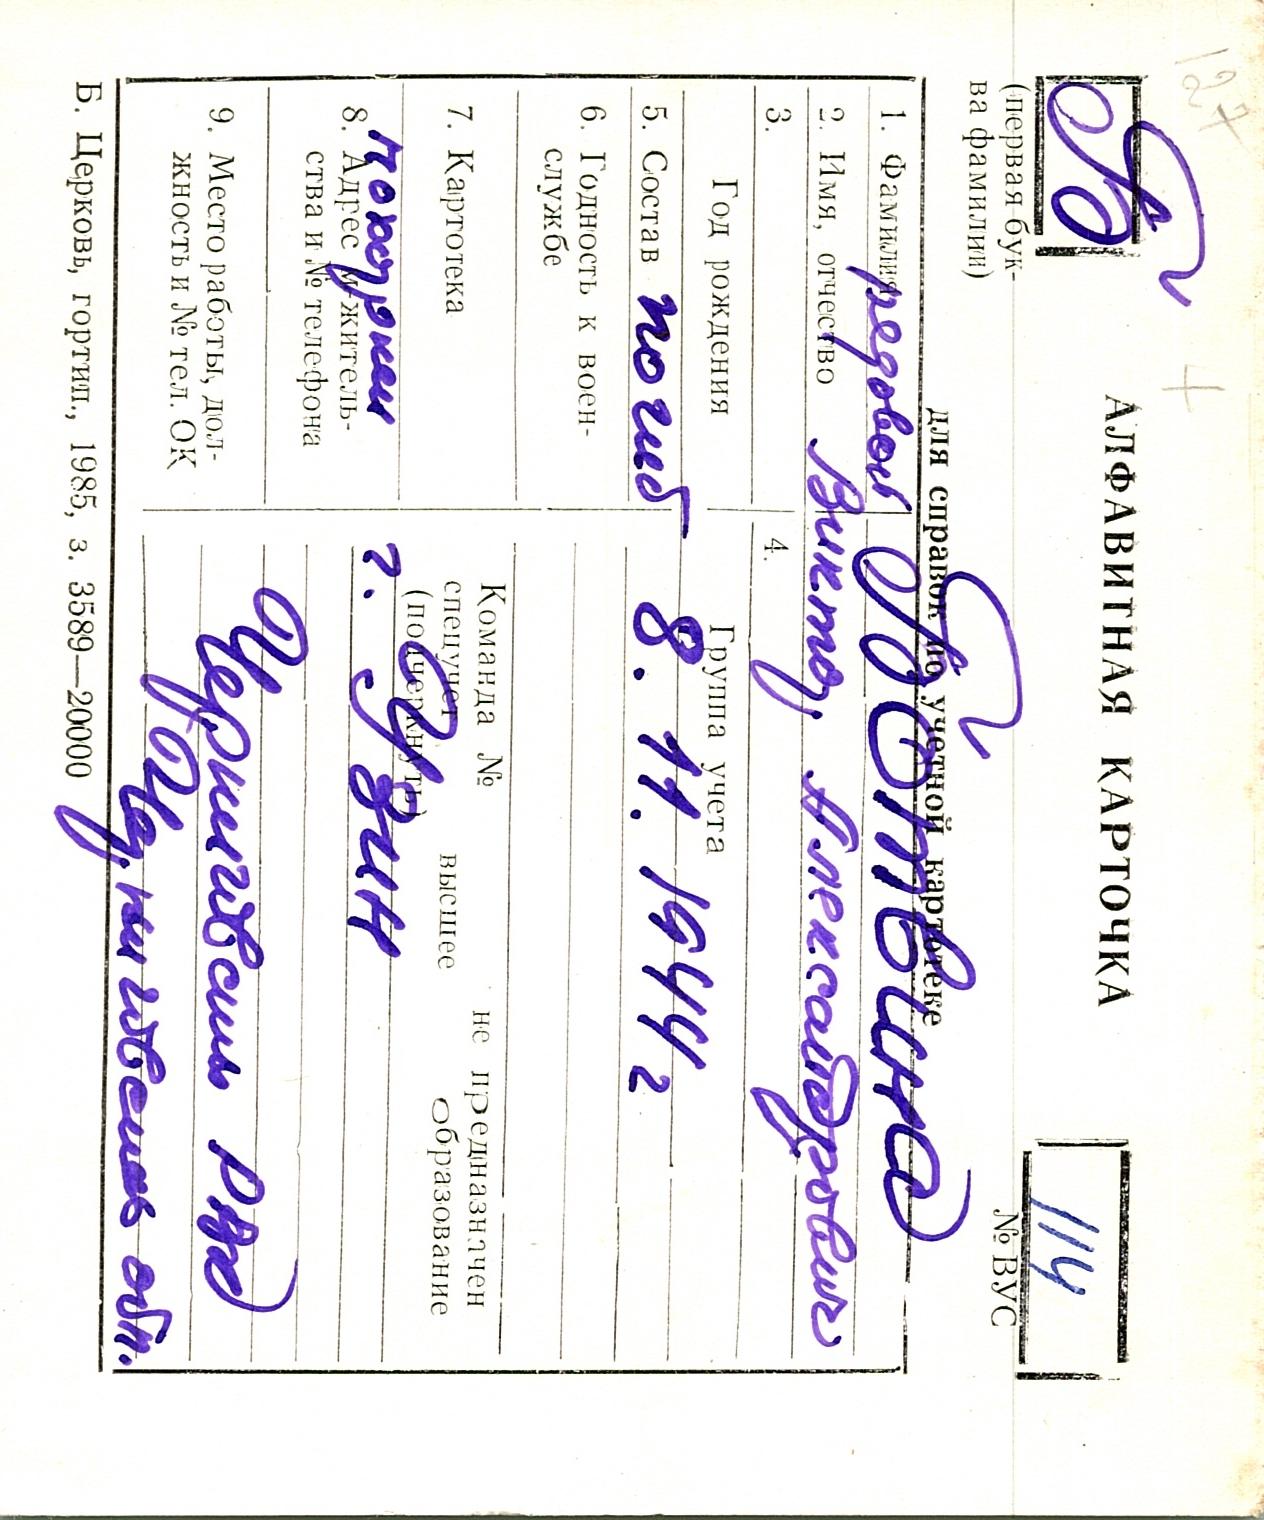 127
Б
(первая бук-
ва фамилии)
АЛФАВИТНАЯ КАРТОЧКА
для справок по учетной картотеке
114
№ ВУС
1. Фамилия рядовой
2. Имя, отчество Виктор Александрович
3. Год рождения
4. Группа учета
5. Состав погиб 8.11.1944 г
6. Годность к воен-
службе
7. Картотека
Команда № не предназначен
спецучет высшее образование
(подчеркнуть)
похорнен г. Узин
8. Адрес м-житель-
ства и № телефона
9. Место работы, дол-
жность и № тел. ОК
Черниговский РВК
Черниговской обл.
Б. Церковь, гортип., 1985, з. 3589—20000